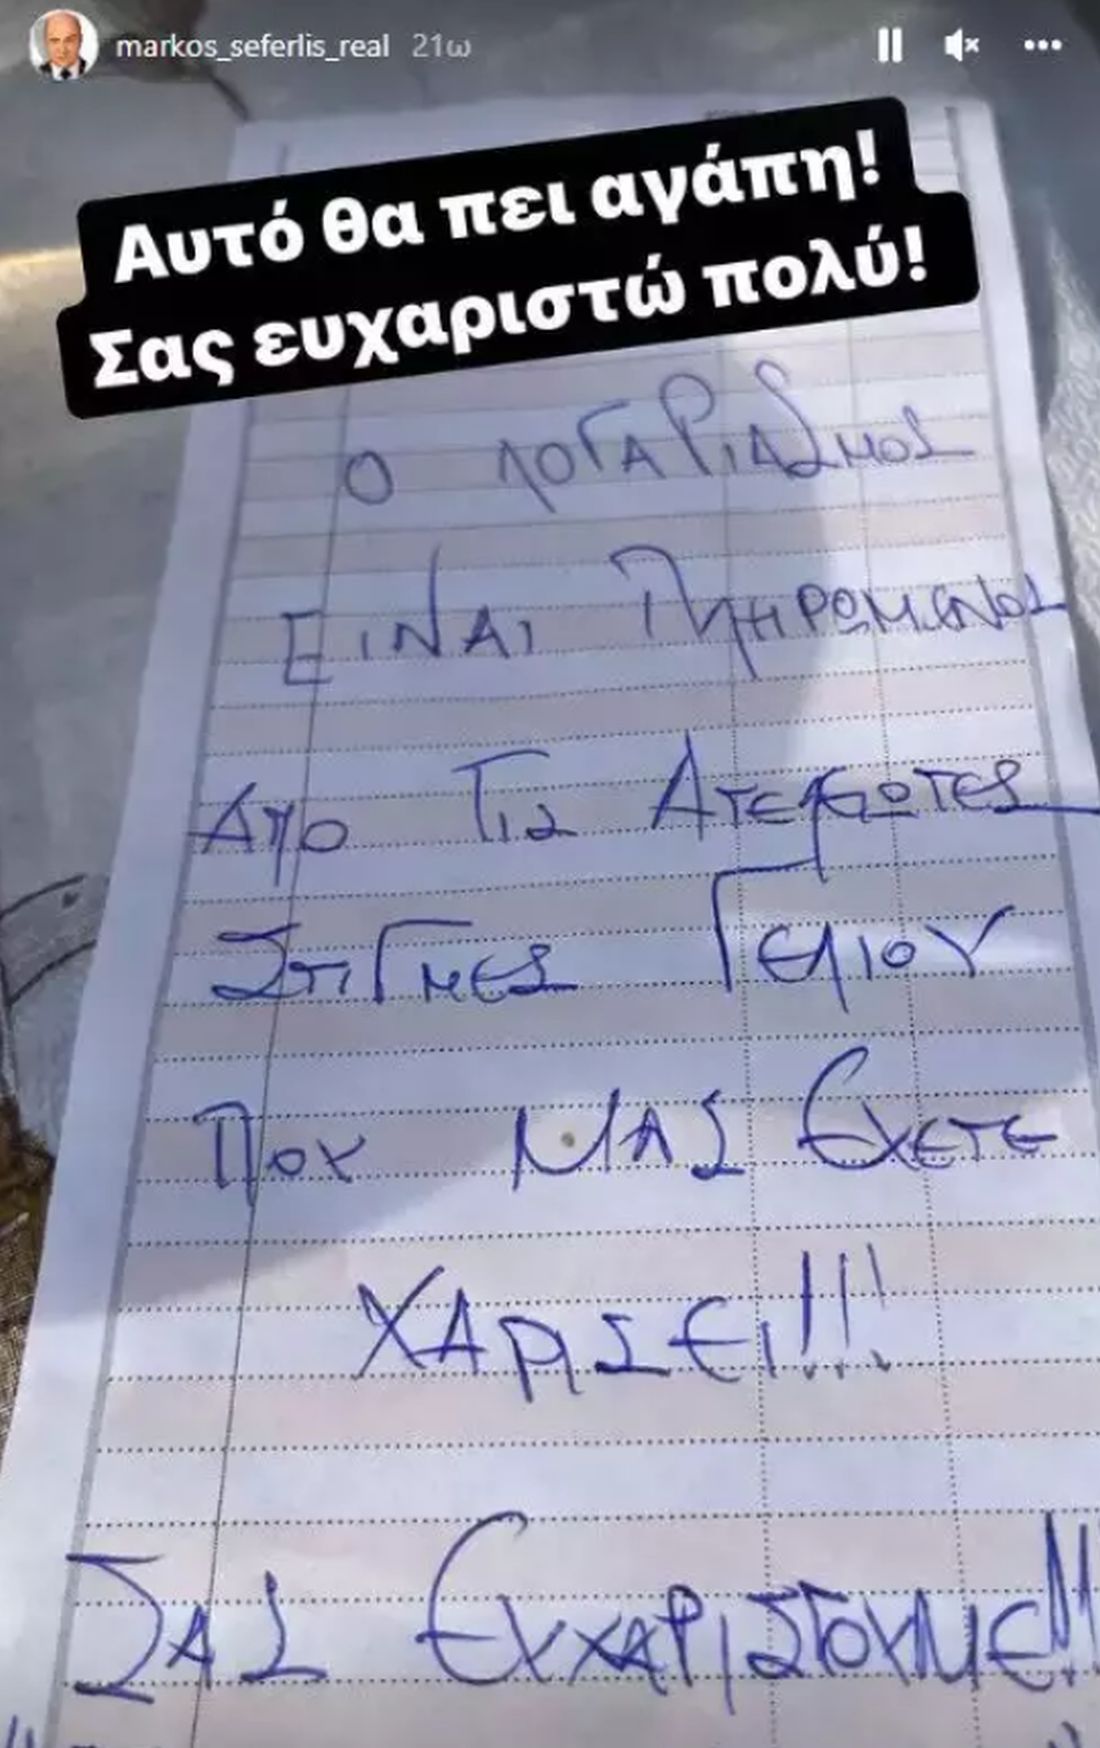 markos_seferlis_real 21ω
Αυτό θα πει αγάπη!
Σας ευχαριστώ πολύ!
Ο ΛΟΓΑΡΙΑΣΜΟΣ
ΕΙΝΑΙ ΠΛΗΡΩΜΕΝΟΣ
ΑΠΟ ΤΙΣ ΑΤΕΛΕΙΩΤΕΣ
ΣΤΙΓΜΕΣ ΓΕΛΙΟΥ
ΠΟΥ ΜΑΣ ΕΧΕΤΕ
ΧΑΡΙΣΕΙ!!!
ΣΑΣ ΕΥΧΑΡΙΣΤΟΥΜΕ!!